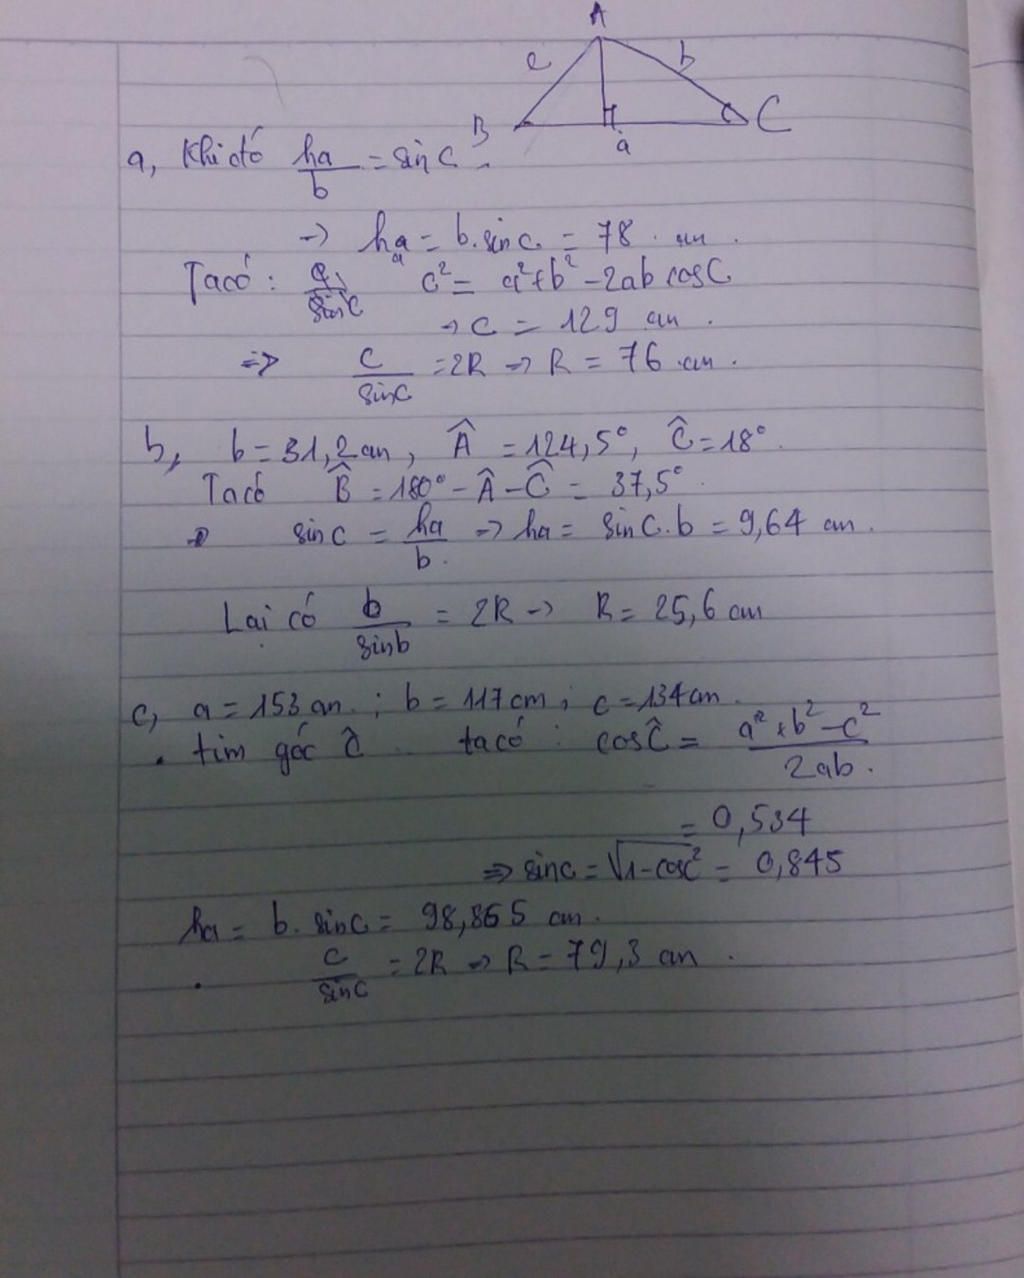 A
c b
B a C
a, Khi đó ha/b = sin C.
→ ha = b.sin C. = 78 cm.
Ta có: c² = a² + b² - 2ab cos C
→ c = 129 cm.
=> c/sinC = 2R → R = 76 cm.
b, b = 31,2 cm, Â = 124,5°, Ĉ = 18°.
Ta có B̂ = 180° - Â - Ĉ = 37,5°.
sin C = ha/b. → ha = sin C.b = 9,64 cm.
Lại có b/sinb = 2R → R = 25,6 cm
c, a = 153 cm. ; b = 117 cm ; c = 134 cm.
. tìm góc ĉ ta có : cosĈ = a² + b² - c²/2ab.
= 0,534
=> sinc = √1-cosc² = 0,845
ha = b. sin C = 98,865 cm.
. c/sinC = 2R → R = 79,3 cm.